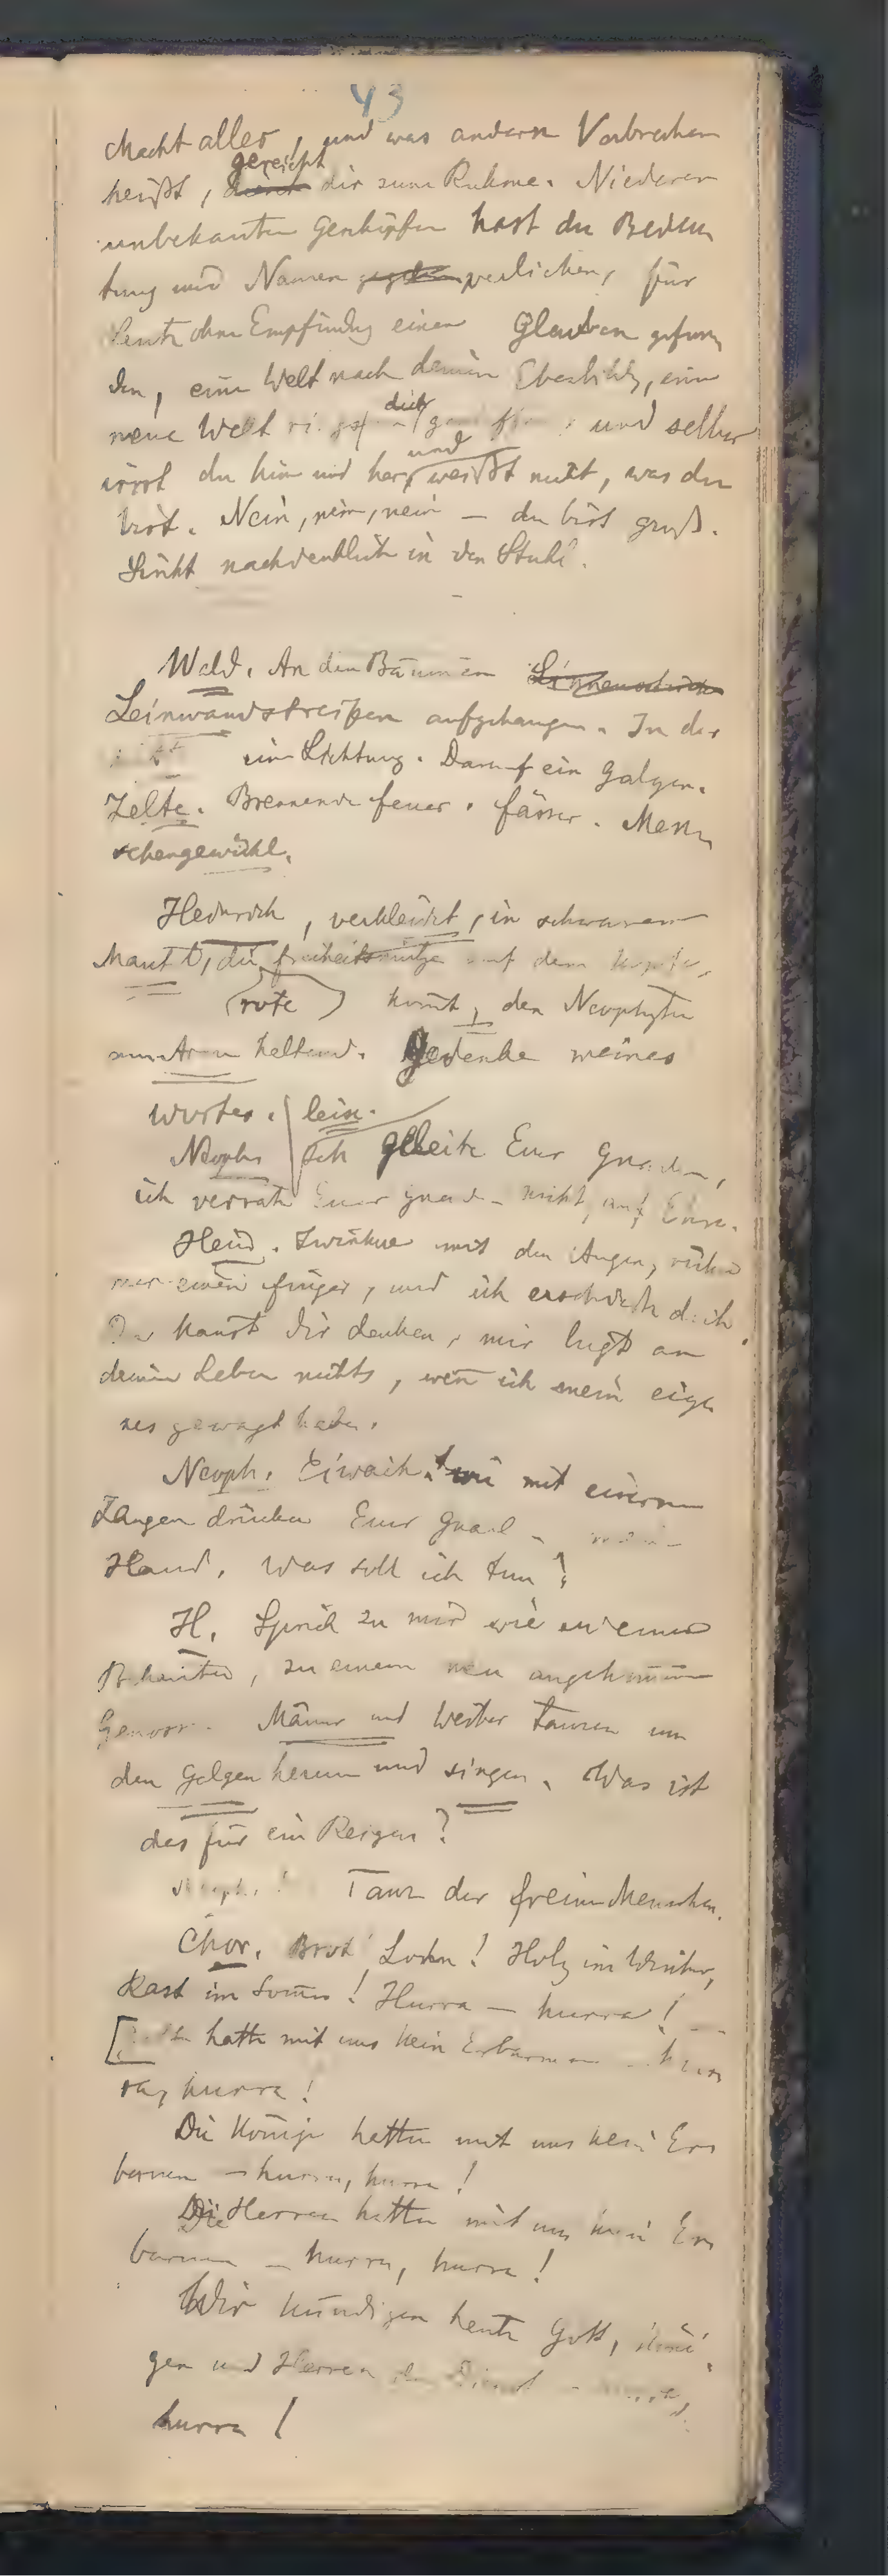 43
Macht alles, und was andern Verbrechen
gereicht
heißt, dir zum Ruhme. Niederen
unbekanten Geschöpfen hast du Bedeu
tung und Namen verliehen, für
Leute ohne Empfindung einen Glauben gefun
den, eine Welt nach deinem Ebenbilde, eine
dich
neue Welt und selber
und
irrst du hin und her, weißt nicht, was du
bist. Nein, nein, nein — du bist groß.
Sinkt nachdenklich in den Stuhl.
Wald. An den Bäumen
Leinwandstreifen aufgehangen. In der
eine Lichtung. Darauf ein Galgen.
Zelte. Brennende Feuer. Fässer. Men
schengewühl.
Heinrich, verkleidet, in schwarzem
Mantel, die Freiheitsmütze auf dem Kopfe,
rote komt, den Neophyten
am Arm haltend. Gedenke meines
Wortes. leise.
Neoph. Ich geleite Euer Gnaden,
ich verrate Euer Gnaden nicht, auf Ehre.
Heinr. Zwinkre mit den Augen, rühre
nur einen Finger, und ich ersteche dich.
Du kanst dir denken, mir liegt an
deinem Leben nichts, wen ich mein eige
nes gewagt habe.
Neoph. Eiwaih! wie mit eisernen
Zangen drücken Euer Gnad
Hand. Was soll ich tun?
H. Sprich zu mir wie zu einem
Bekanten, zu einem neu angekommenen
Genoss. Männer und Weiber tanzen um
den Galgen herum und singen. Was ist
das für ein Reigen?
Neoph. Tanz der freien Menschen.
Chor. Brot Loden! Holz im Winter,
Rast im Somer! Hurra — hurra!
hatte mit uns kein Erbarmen hur
ra, hurra!
Die Könige hatten mit uns kein Er
barmen — hurra, hurra!
Die Herren hatten mit uns kein Er
barmen — hurra, hurra!
Wir kündigen heute Gott, Köni
gen und Herren den Dienst
hurra!